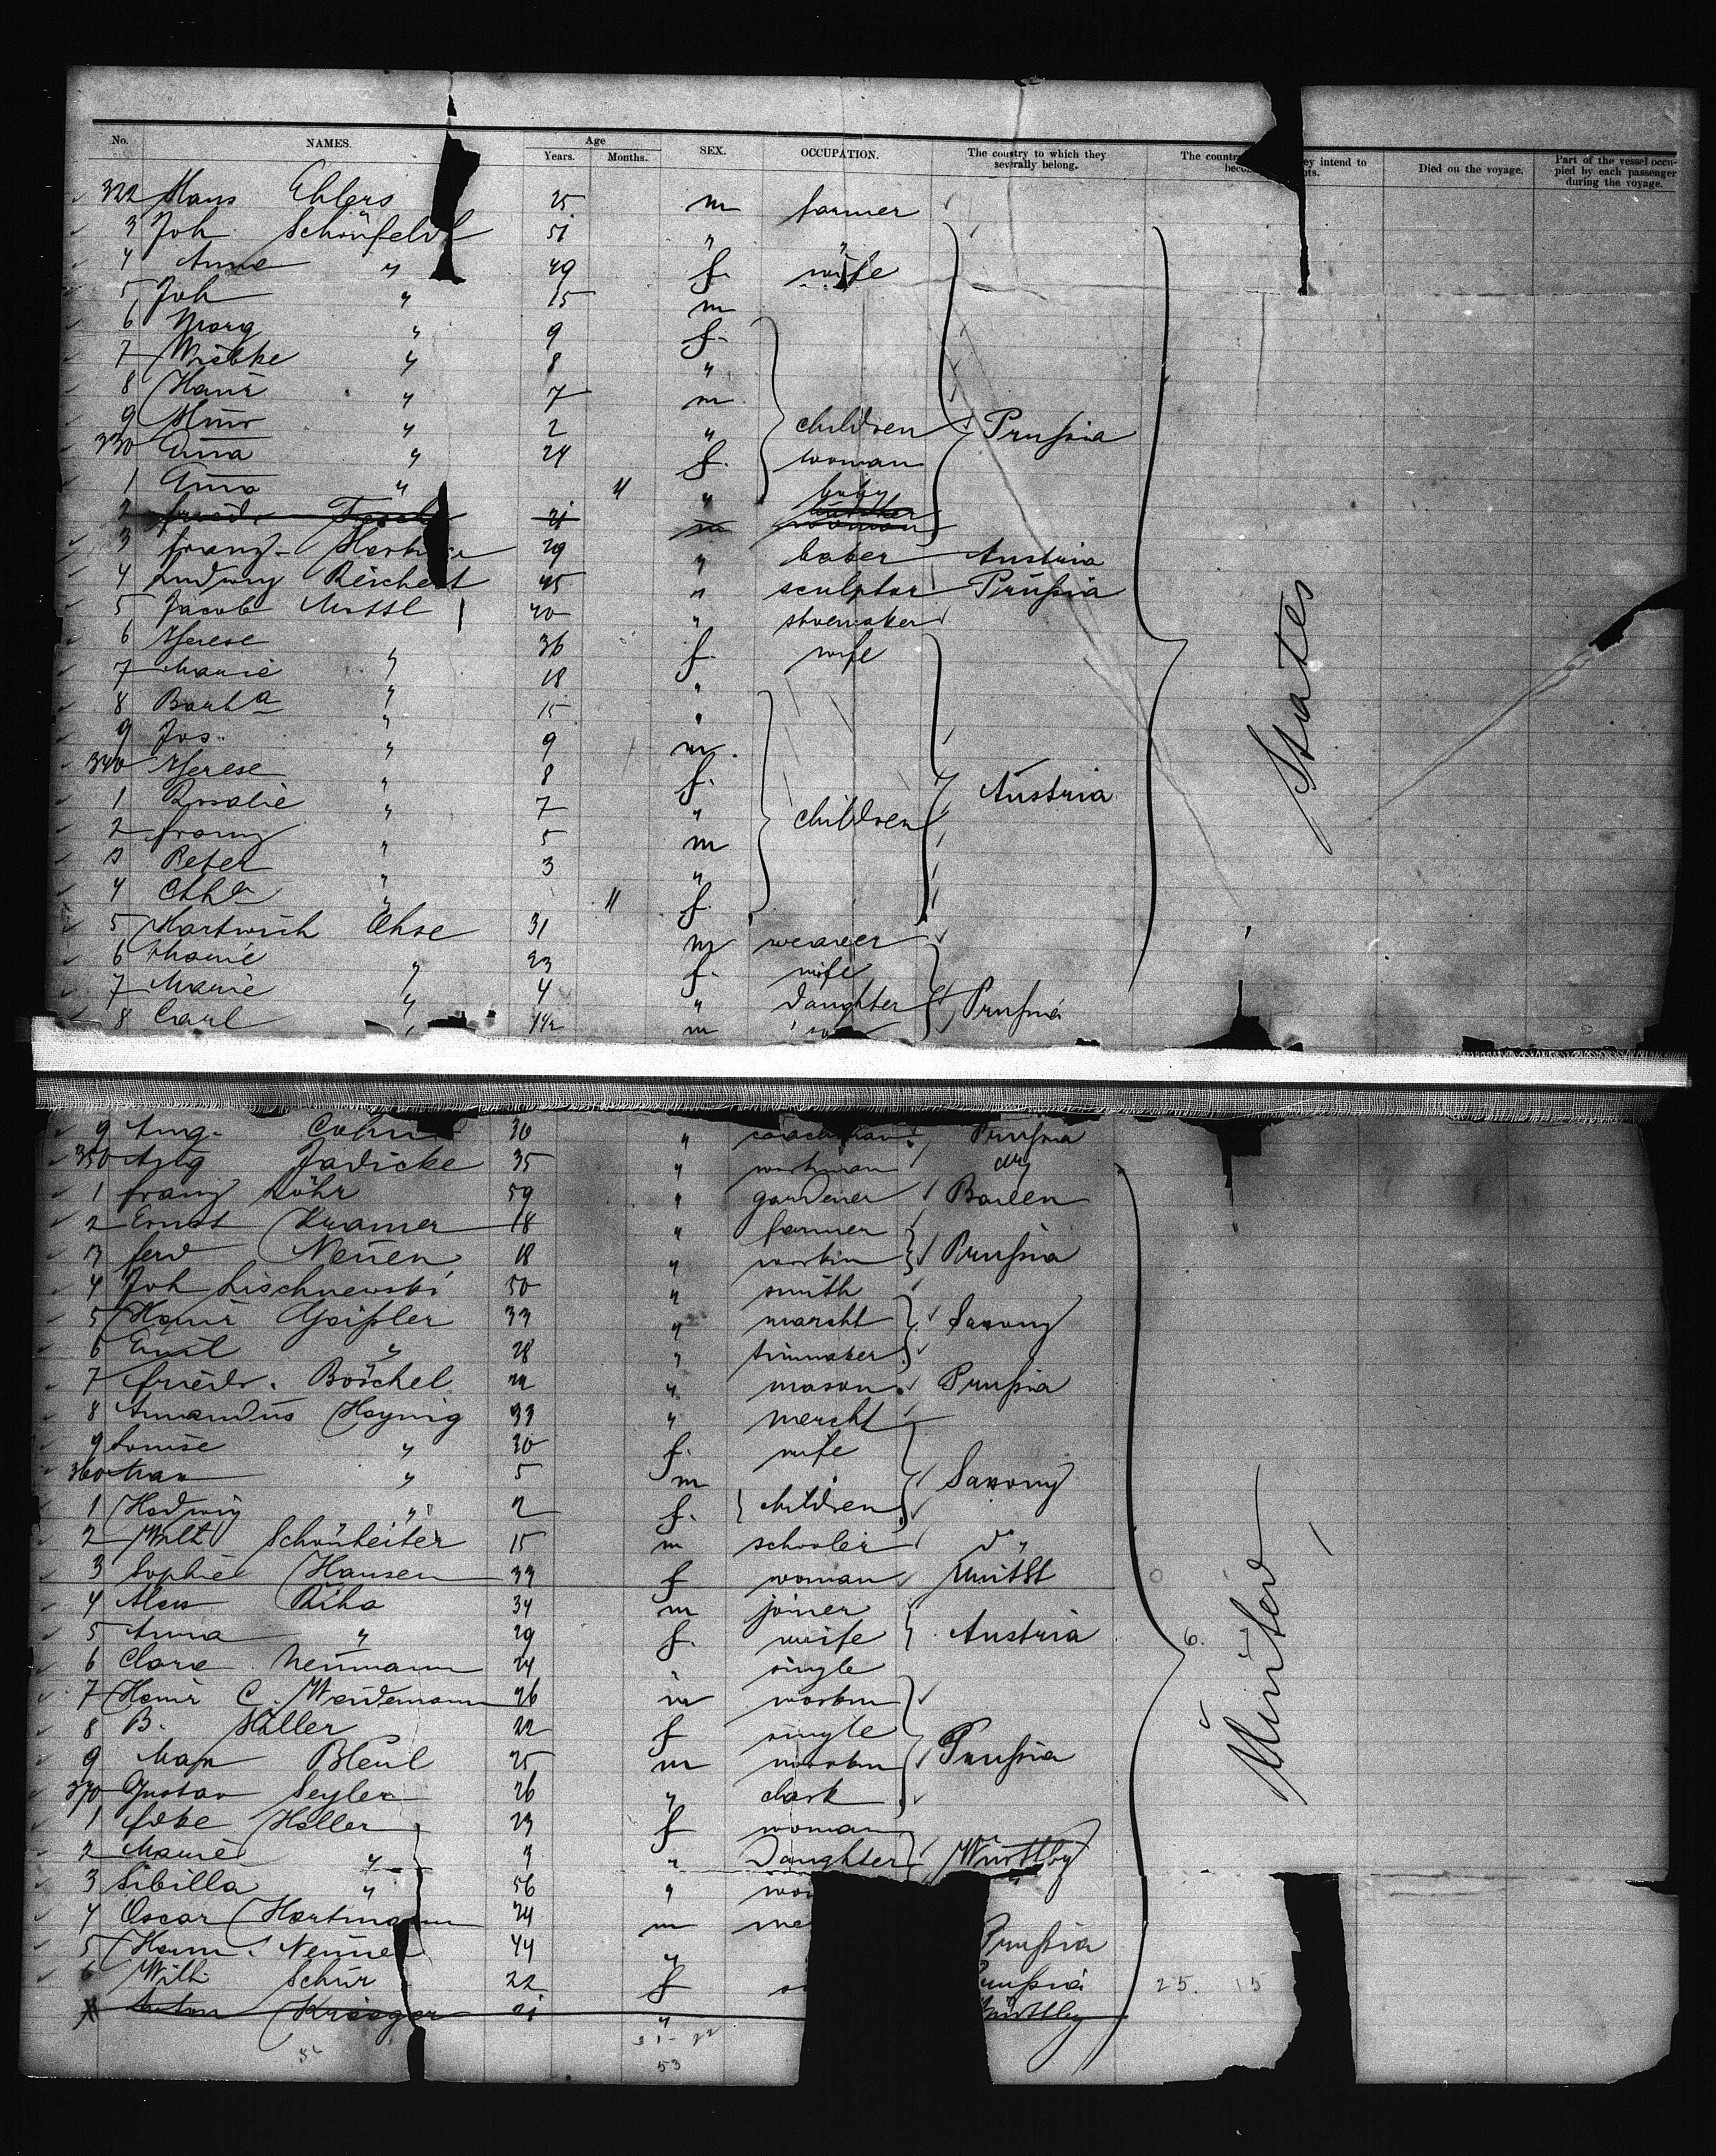 No. NAMES. Age Years. Months. SEX. OCCUPATION. The country to which they severally belong. The country ey intend to Died on the voyage. Part of the vessel occupied by each passenger during the voyage.
322 Hans Ehlers 25 m farmer
3 Joh Schönfeldt 51 " "
4 Anna " 49 f. wife
5 Joh " 15 m
6 Marg " 9 f.
7 Wiebke " 8 "
8 Heinr " 7 m
9 " 2 " children Prussia
330 Anna " 24 f. woman
1 Anna " 11 " baby
2 Friedr. 21 m
3 Franz 29 " baker Austria
4 Ludwig Reichert 45 " sculptor Prussia
5 Jacob 40 " shoemaker
6 Therese " 36 f. wife
7 Marie " 18 "
8 Barba " 15 "
9 Jos. " 9 m.
340 Therese " 8 f. Austria
1 Rosalie " 7 " children
2 Franz " 5 m
3 Peter " 3 "
4 Cthr " 11 f.
5 Hartwich Ohse 31 m weaver
6 Marie " 23 f. wife
7 Marie " 4 " daughter Prussia
8 Carl " 1 1/2 m
States
9 Aug. 30 " coachman Prussia
350 Aug Jadicke 35 " workman
1 Franz Löhr 59 " gardener Baden
2 Ernst Kramer 18 " farmer
3 Ferd Neuen 18 " workm Prussia
4 Joh Lischnewski 50 " smith
5 Heinr Geißler 33 " marcht Saxony
6 Emil " 28 " tinmaker
7 Friedr. Böschel 22 " mason Prussia
8 Amandus Heynig 33 " mercht
9 Louise " 30 f. wife
360 Max " 5 m Saxony
1 Hedwig " 2 f. children
2 Wilh Schönheiter 15 m schooler d "
3 Sophie Hansen 33 f woman UnitSt
4 Alois Riha 34 m joiner
5 Anna " 29 f. wife Austria 6.
6 Clara Neumann 24 " single
7 Heinr C. Weidemann 26 m workm
8 B. Haller 22 f single
9 Max Bleul 25 m workm Prussia
370 Gustav Seyler 26 " clark
1 Heller 23 f woman
2 Marie " " Daughter Würtlbg
3 Sibilla " 56 " "
4 Oscar Hartmann 24 m
5 Herm. 44 " Prussia
6 Wilh Schür 22 f 25. 15
Anton Krieger 21 "
United
53